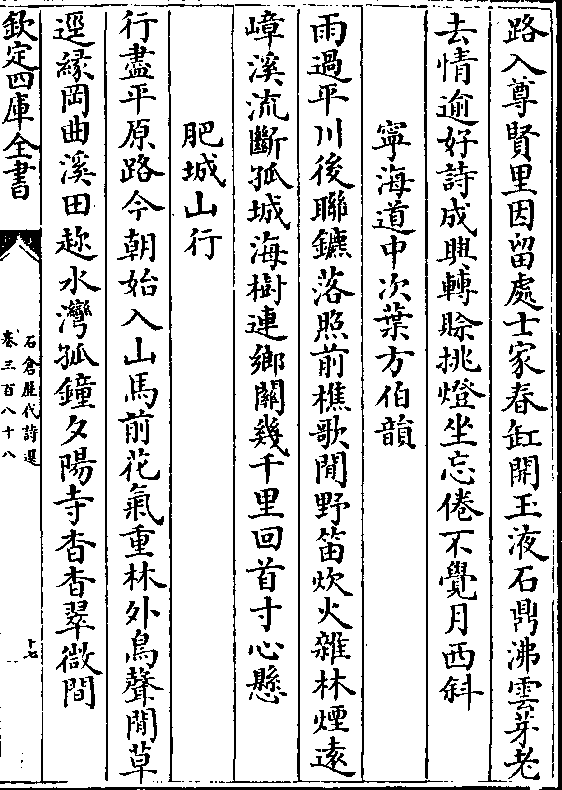 路入尊賢里因留處士家春缸開玉液石鼎沸雲芽老
去情逾好詩成興轉賒挑燈坐忘倦不覺月西斜
寧海道中次葉方伯韻
雨過平川後聯鑣落照前樵歌間野笛炊火雜林煙遠
嶂溪流斷孤城海樹連鄉關幾千里回首寸心懸
肥城山行
行盡平原路今朝始入山馬前花氣重林外鳥聲閒草
逕緣岡曲溪田趂水灣孤鐘夕陽寺杳杳翠微間
欽定四庫全書
石倉歷代詩選
卷三百八十八
十七